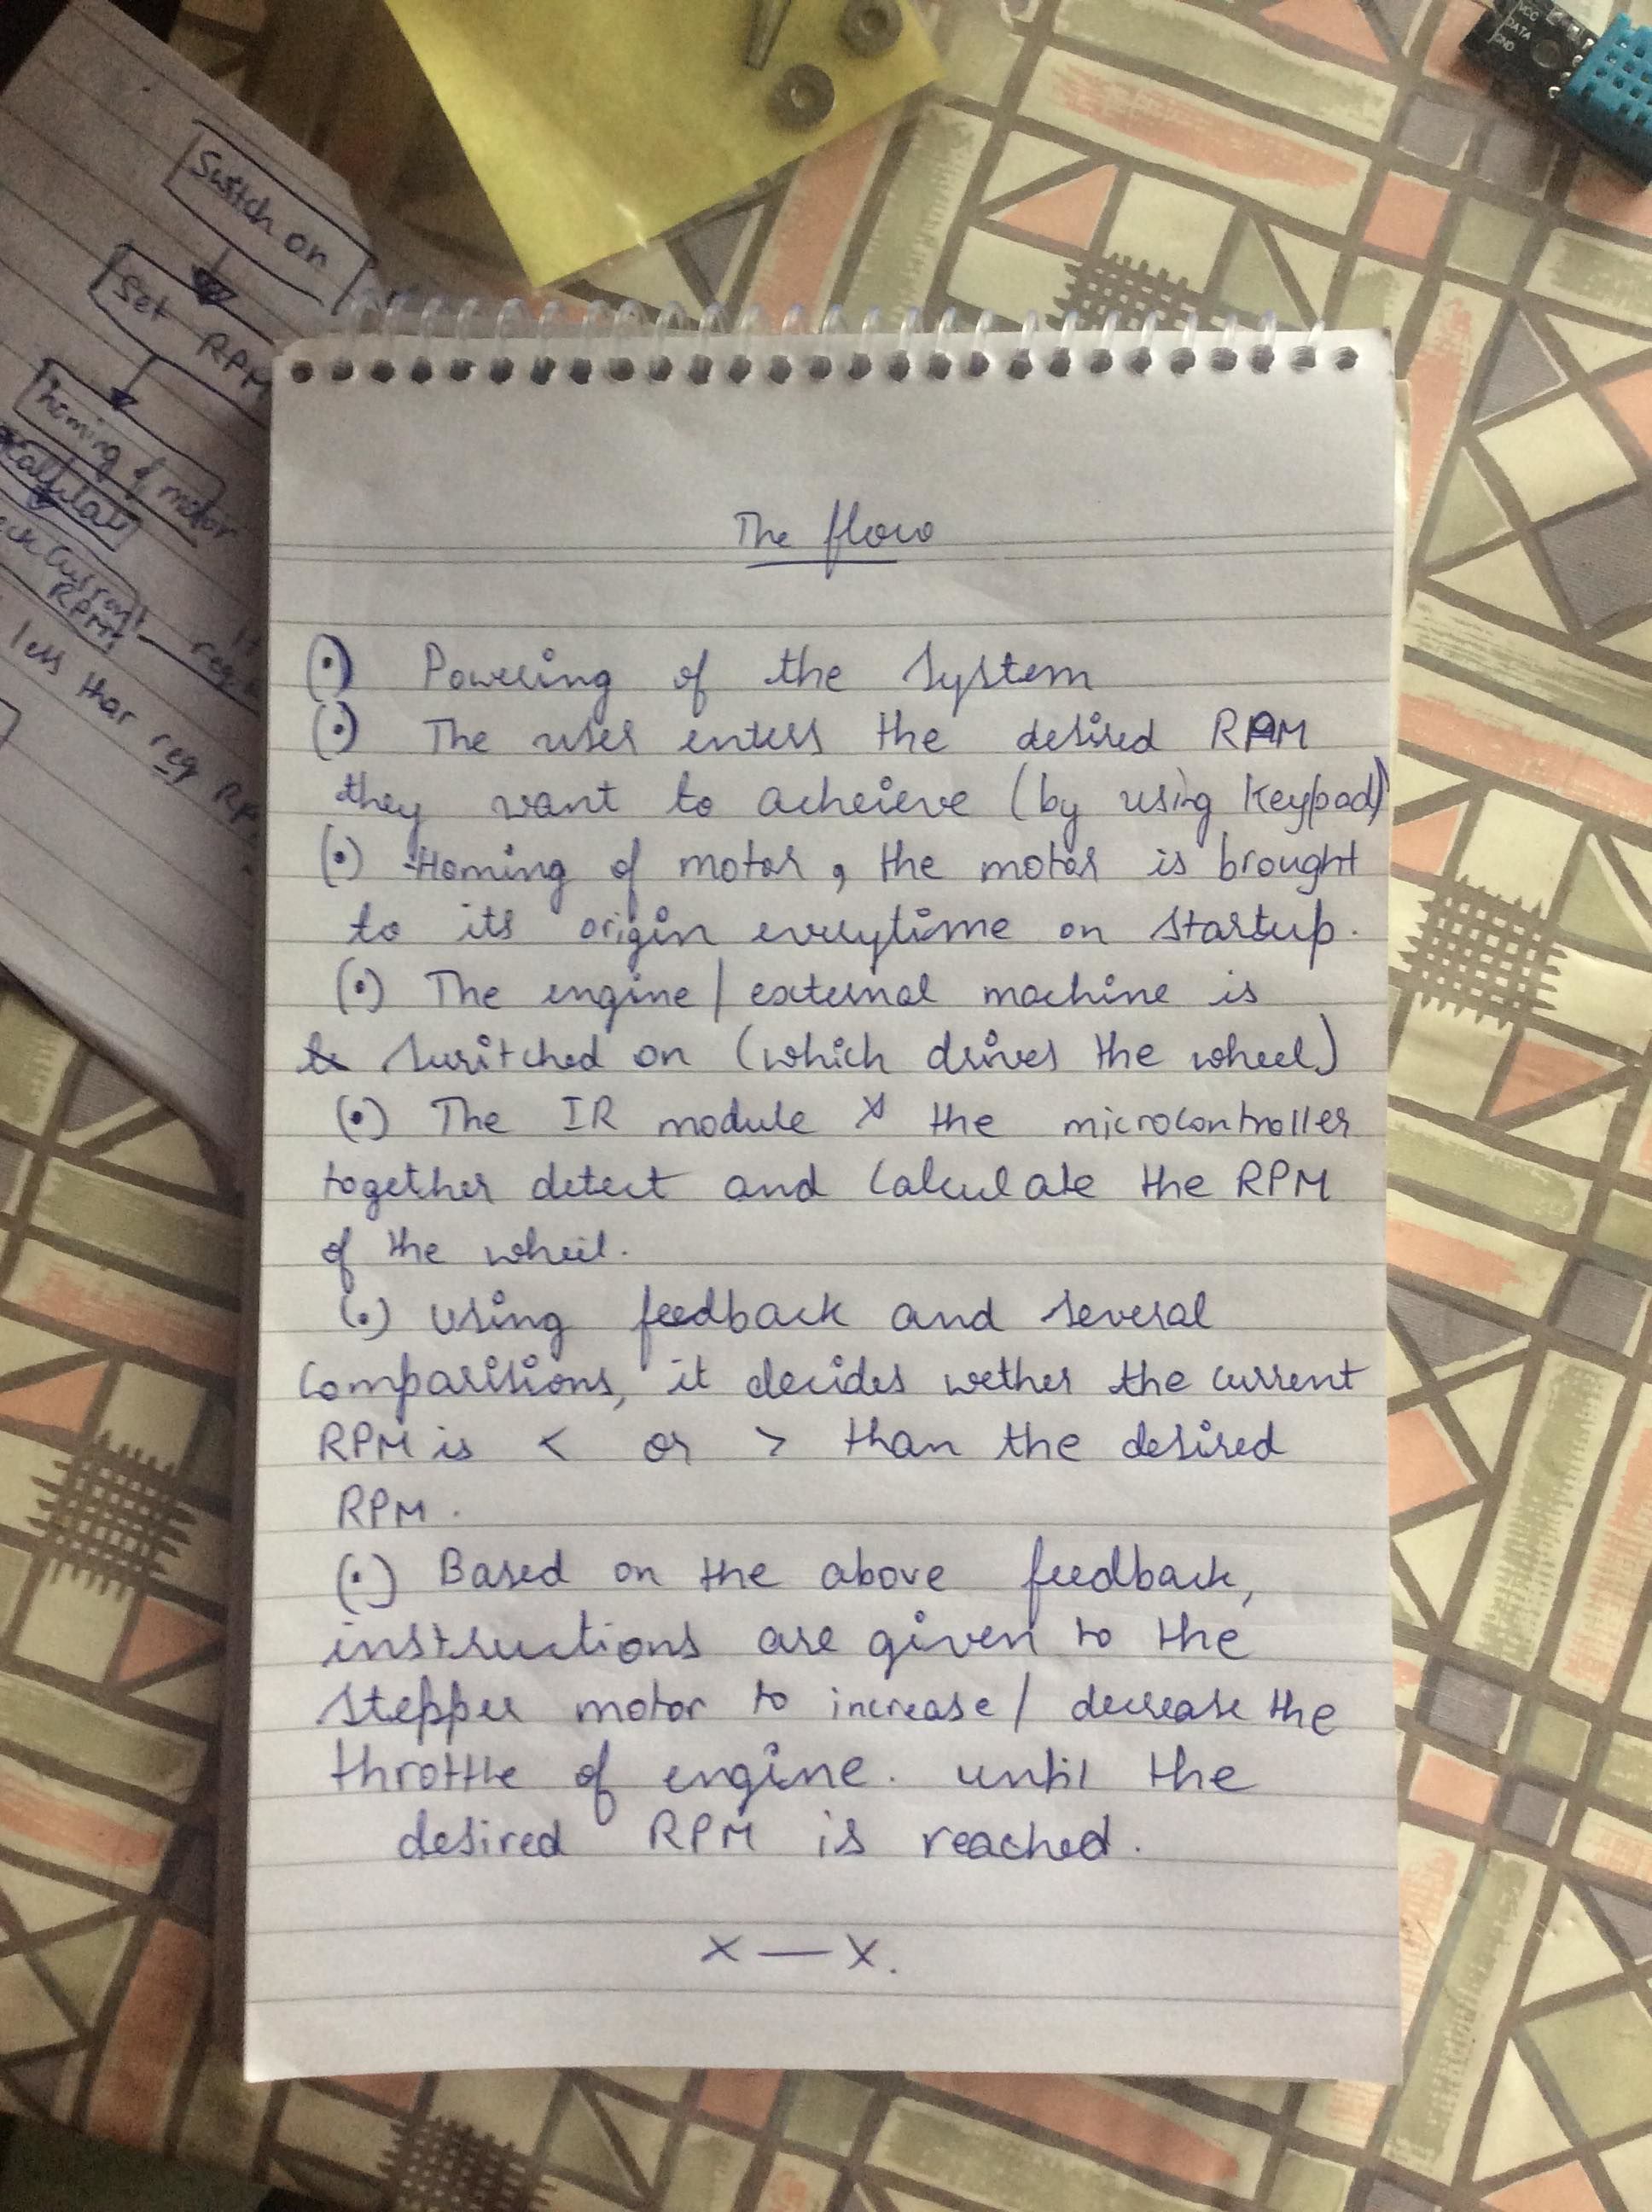 VCC
DATA
GND
Switch on
Set RPM
homing of motor
RPM
less than req RP
The flow
(•) Powering of the system
(•) The user enters the desired RPM
they want to acheieve (by using Keypad)
(•) Homing of motor, the motor is brought
to its origin everytime on startup.
(•) The engine/external machine is
switched on (which drives the wheel)
(•) The IR module & the microcontroller
together detect and Calculate the RPM
of the wheel.
(•) Using feedback and several
Comparisions, it decides wether the current
RPM is < or > than the desired
RPM.
(•) Based on the above feedback,
instructions are given to the
stepper motor to increase/decrease the
throttle of engine. until the
desired RPM is reached.
x — x.